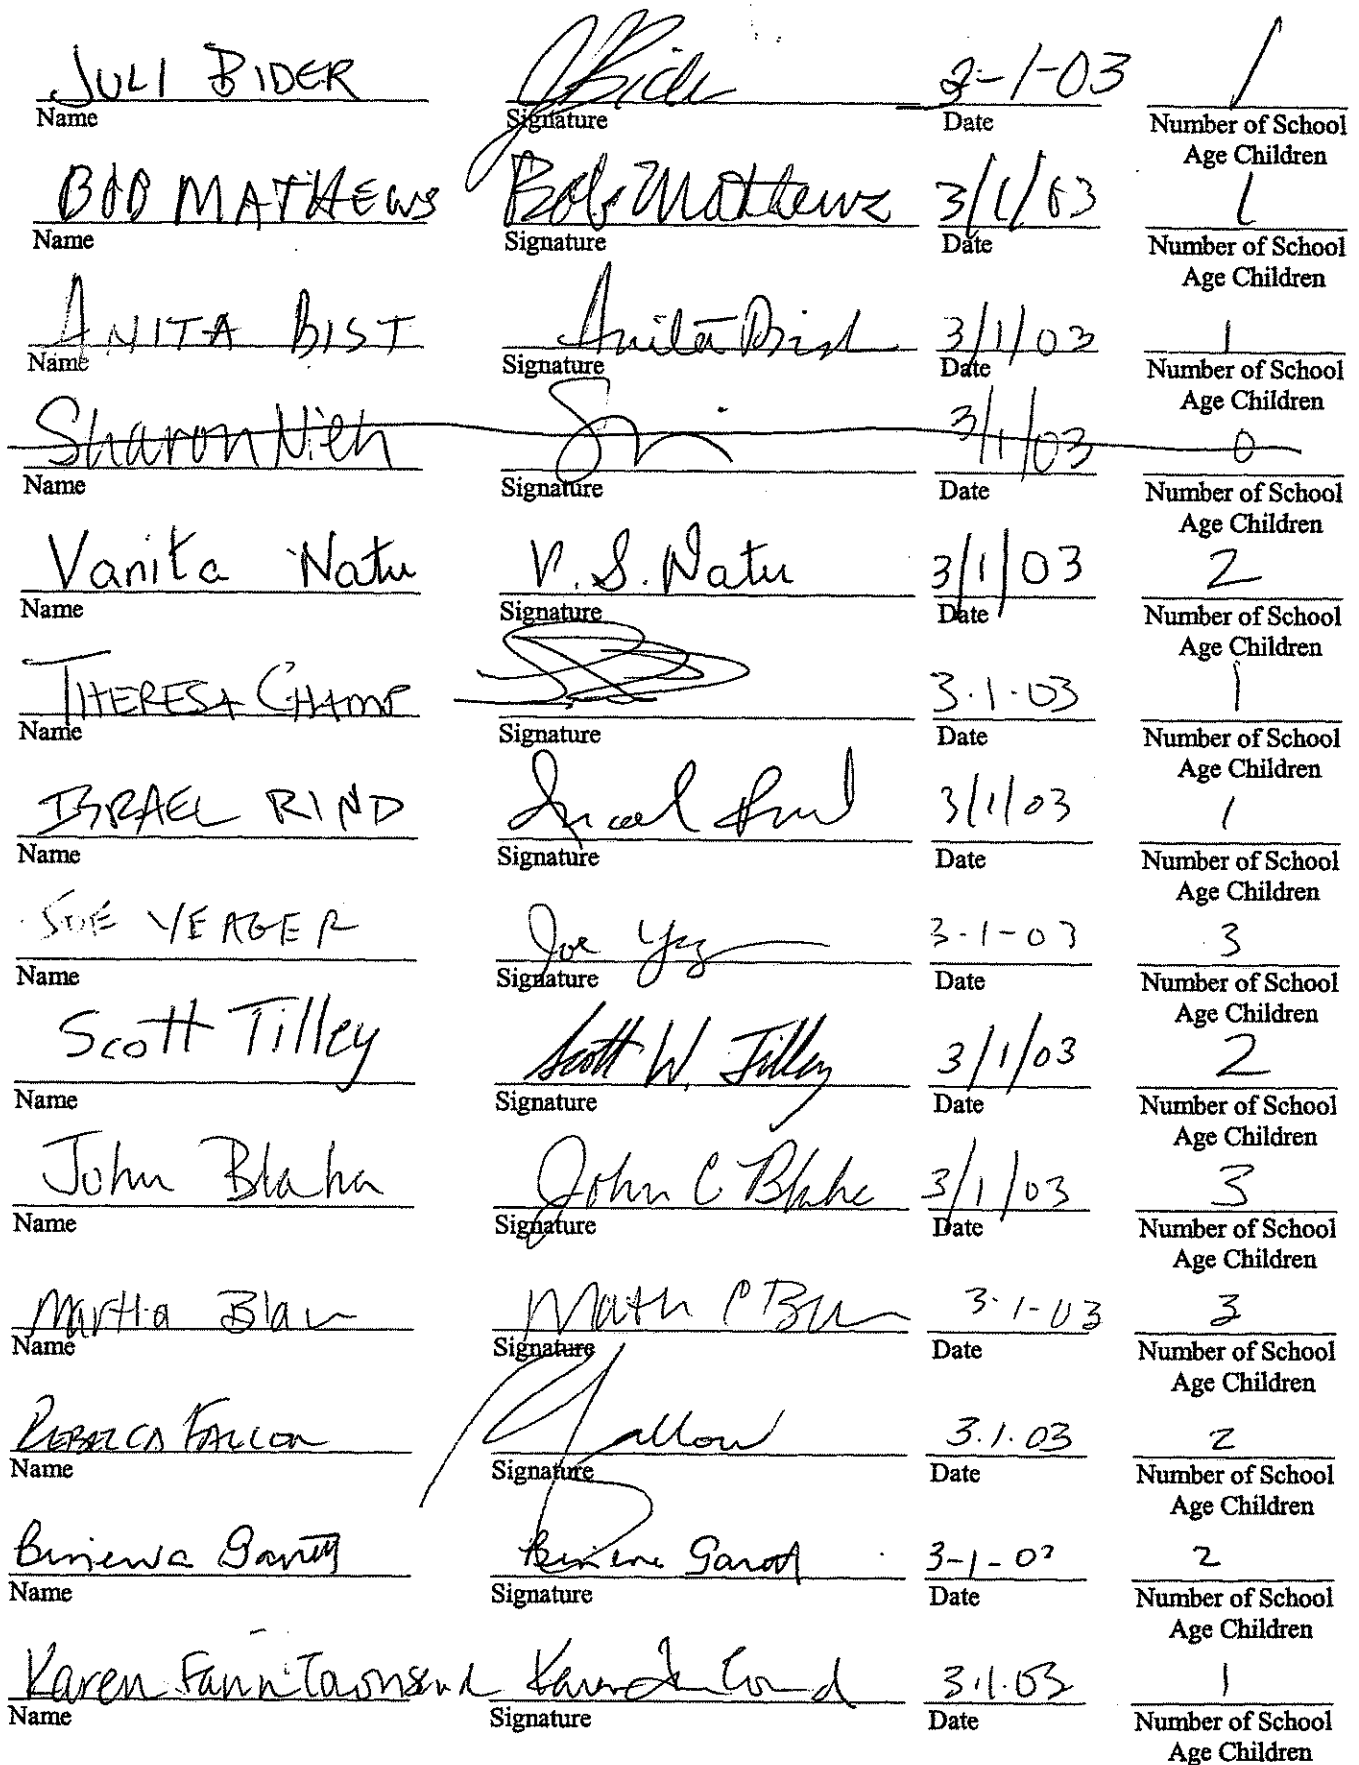 JULI BIDER JBider 3-1-03 1
Name Signature Date Number of School
Age Children
BOB MATHEWS Bob Mathews 3/1/03 1
Name Signature Date Number of School
Age Children
ANITA BIST Anita Bist 3/1/03 1
Name Signature Date Number of School
Age Children
Sharon Nieh 3/1/03 0
Name Signature Date Number of School
Age Children
Vanita Natu V. S. Natu 3/1/03 2
Name Signature Date Number of School
Age Children
THERESA CHAMP 3.1.03 1
Name Signature Date Number of School
Age Children
ISRAEL RIND Israel Rind 3/1/03 1
Name Signature Date Number of School
Age Children
JOE YEAGER Joe 3-1-03 3
Name Signature Date Number of School
Age Children
Scott Tilley Scott W. Tilley 3/1/03 2
Name Signature Date Number of School
Age Children
John Blaha John C Blaha 3/1/03 3
Name Signature Date Number of School
Age Children
Martha 3-1-03 3
Name Signature Date Number of School
Age Children
REBECCA FALLON Fallon 3.1.03 2
Name Signature Date Number of School
Age Children
3-1-03 2
Name Signature Date Number of School
Age Children
Karen Fann Townsend Karen 3.1.03 1
Name Signature Date Number of School
Age Children